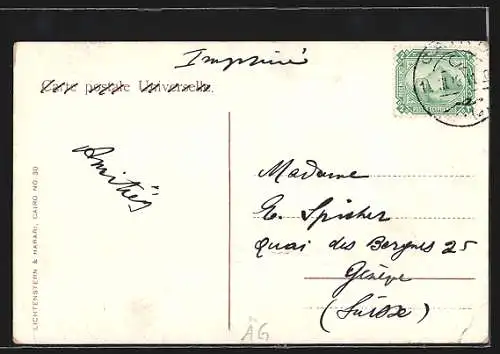 Imprimé
Carte postale Universelle.
Amitiés
Madame
E. Spicher
Quai des Bergues 25
Genève
(Suisse)
LICHTENSTERN & HARARI, CAIRO NO. 30
ÄG